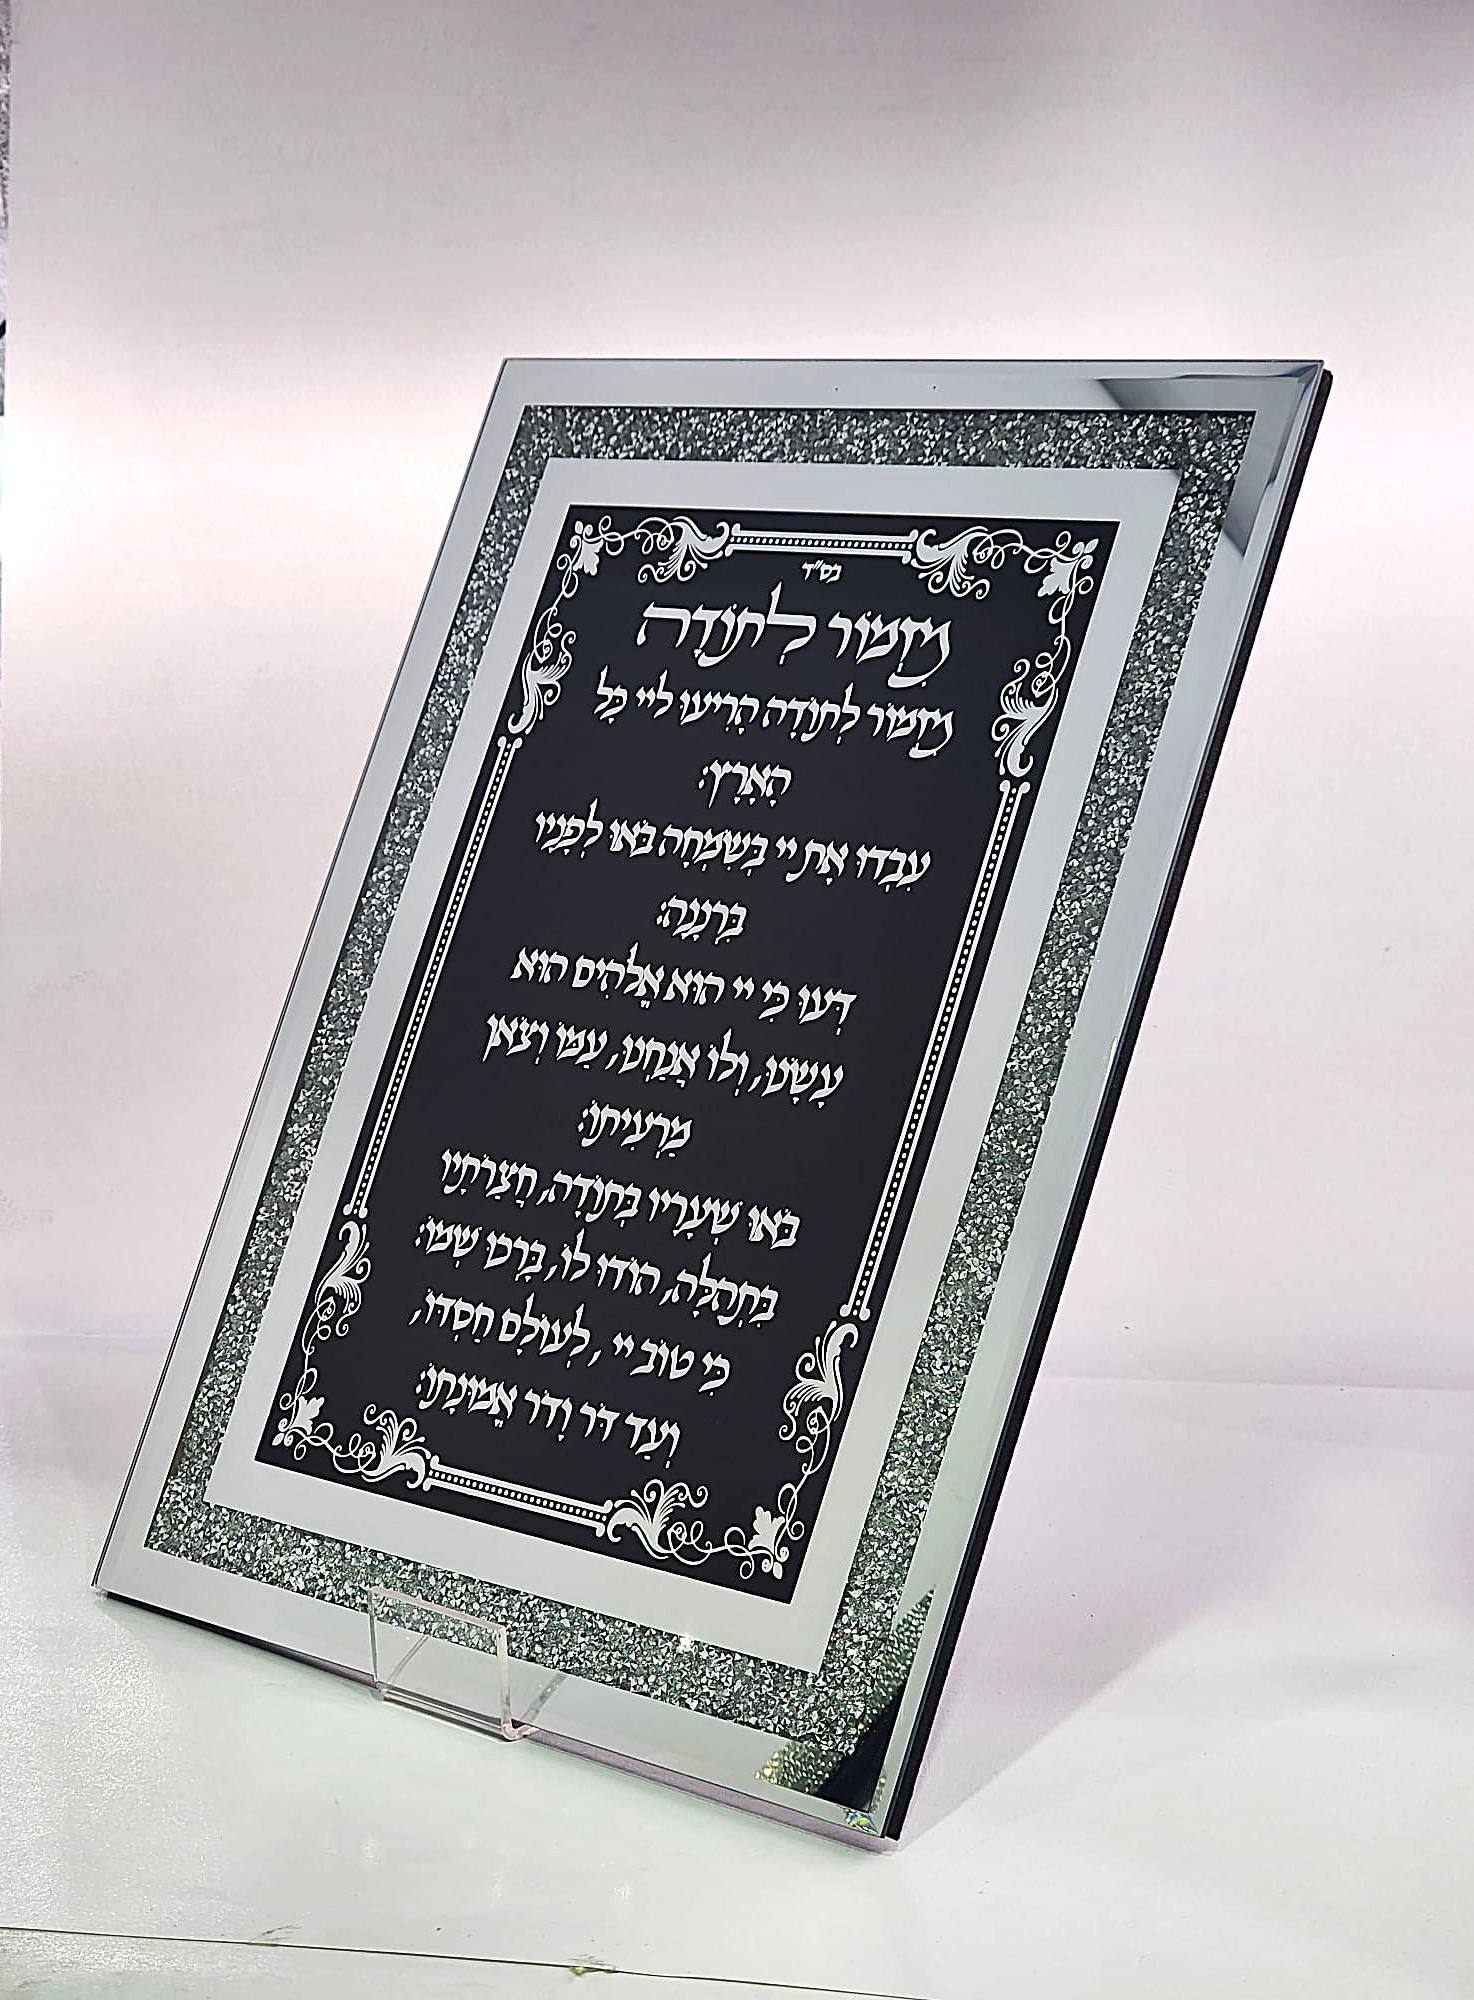 בס"ד
מִזְמוֹר לְתוֹדָה
מִזְמוֹר לְתוֹדָה הָרִיעוּ לַיי כָּל
הָאָרֶץ:
עִבְדוּ אֶת יי בְּשִׂמְחָה בֹּאוּ לְפָנָיו
בִּרְנָנָה:
דְּעוּ כִּי יי הוּא אֱלֹהִים הוּא
עָשָׂנוּ, וְלוֹ אֲנַחְנוּ, עַמּוֹ וְצֹאן
מַרְעִיתוֹ:
בֹּאוּ שְׁעָרָיו בְּתוֹדָה, חֲצֵרֹתָיו
בִּתְהִלָּה, הוֹדוּ לוֹ, בָּרְכוּ שְׁמוֹ:
כִּי טוֹב יי, לְעוֹלָם חַסְדּוֹ,
וְעַד דֹּר וָדֹר אֱמוּנָתוֹ: